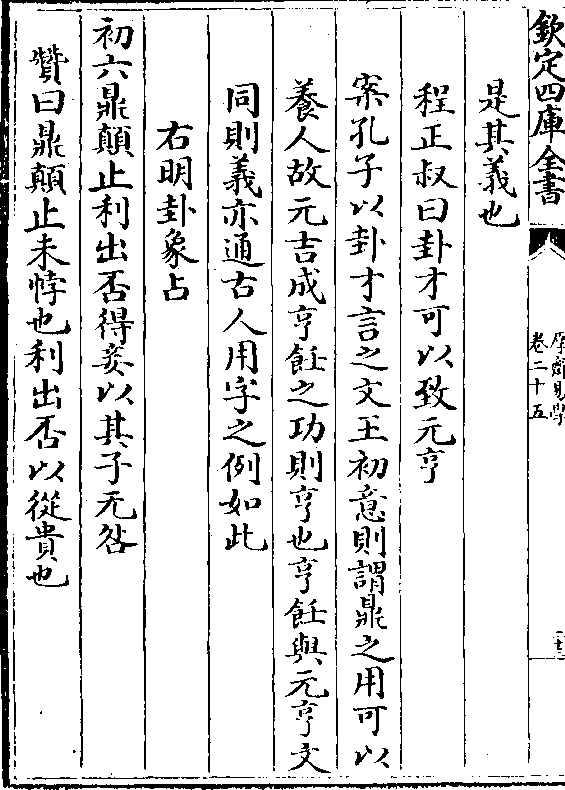 欽定四庫全書
厚齋易學
卷二十五
是其義也
程正叔曰卦才可以致元亨
案孔子以卦才言之文王初意則謂鼎之用可以
養人故元吉成亨飪之功則亨也亨飪與元亨文
同則義亦通古人用字之例如此
右明卦象占
初六鼎顛止利出否得妾以其子无咎
贊曰鼎顛止未悖也利出否以從貴也